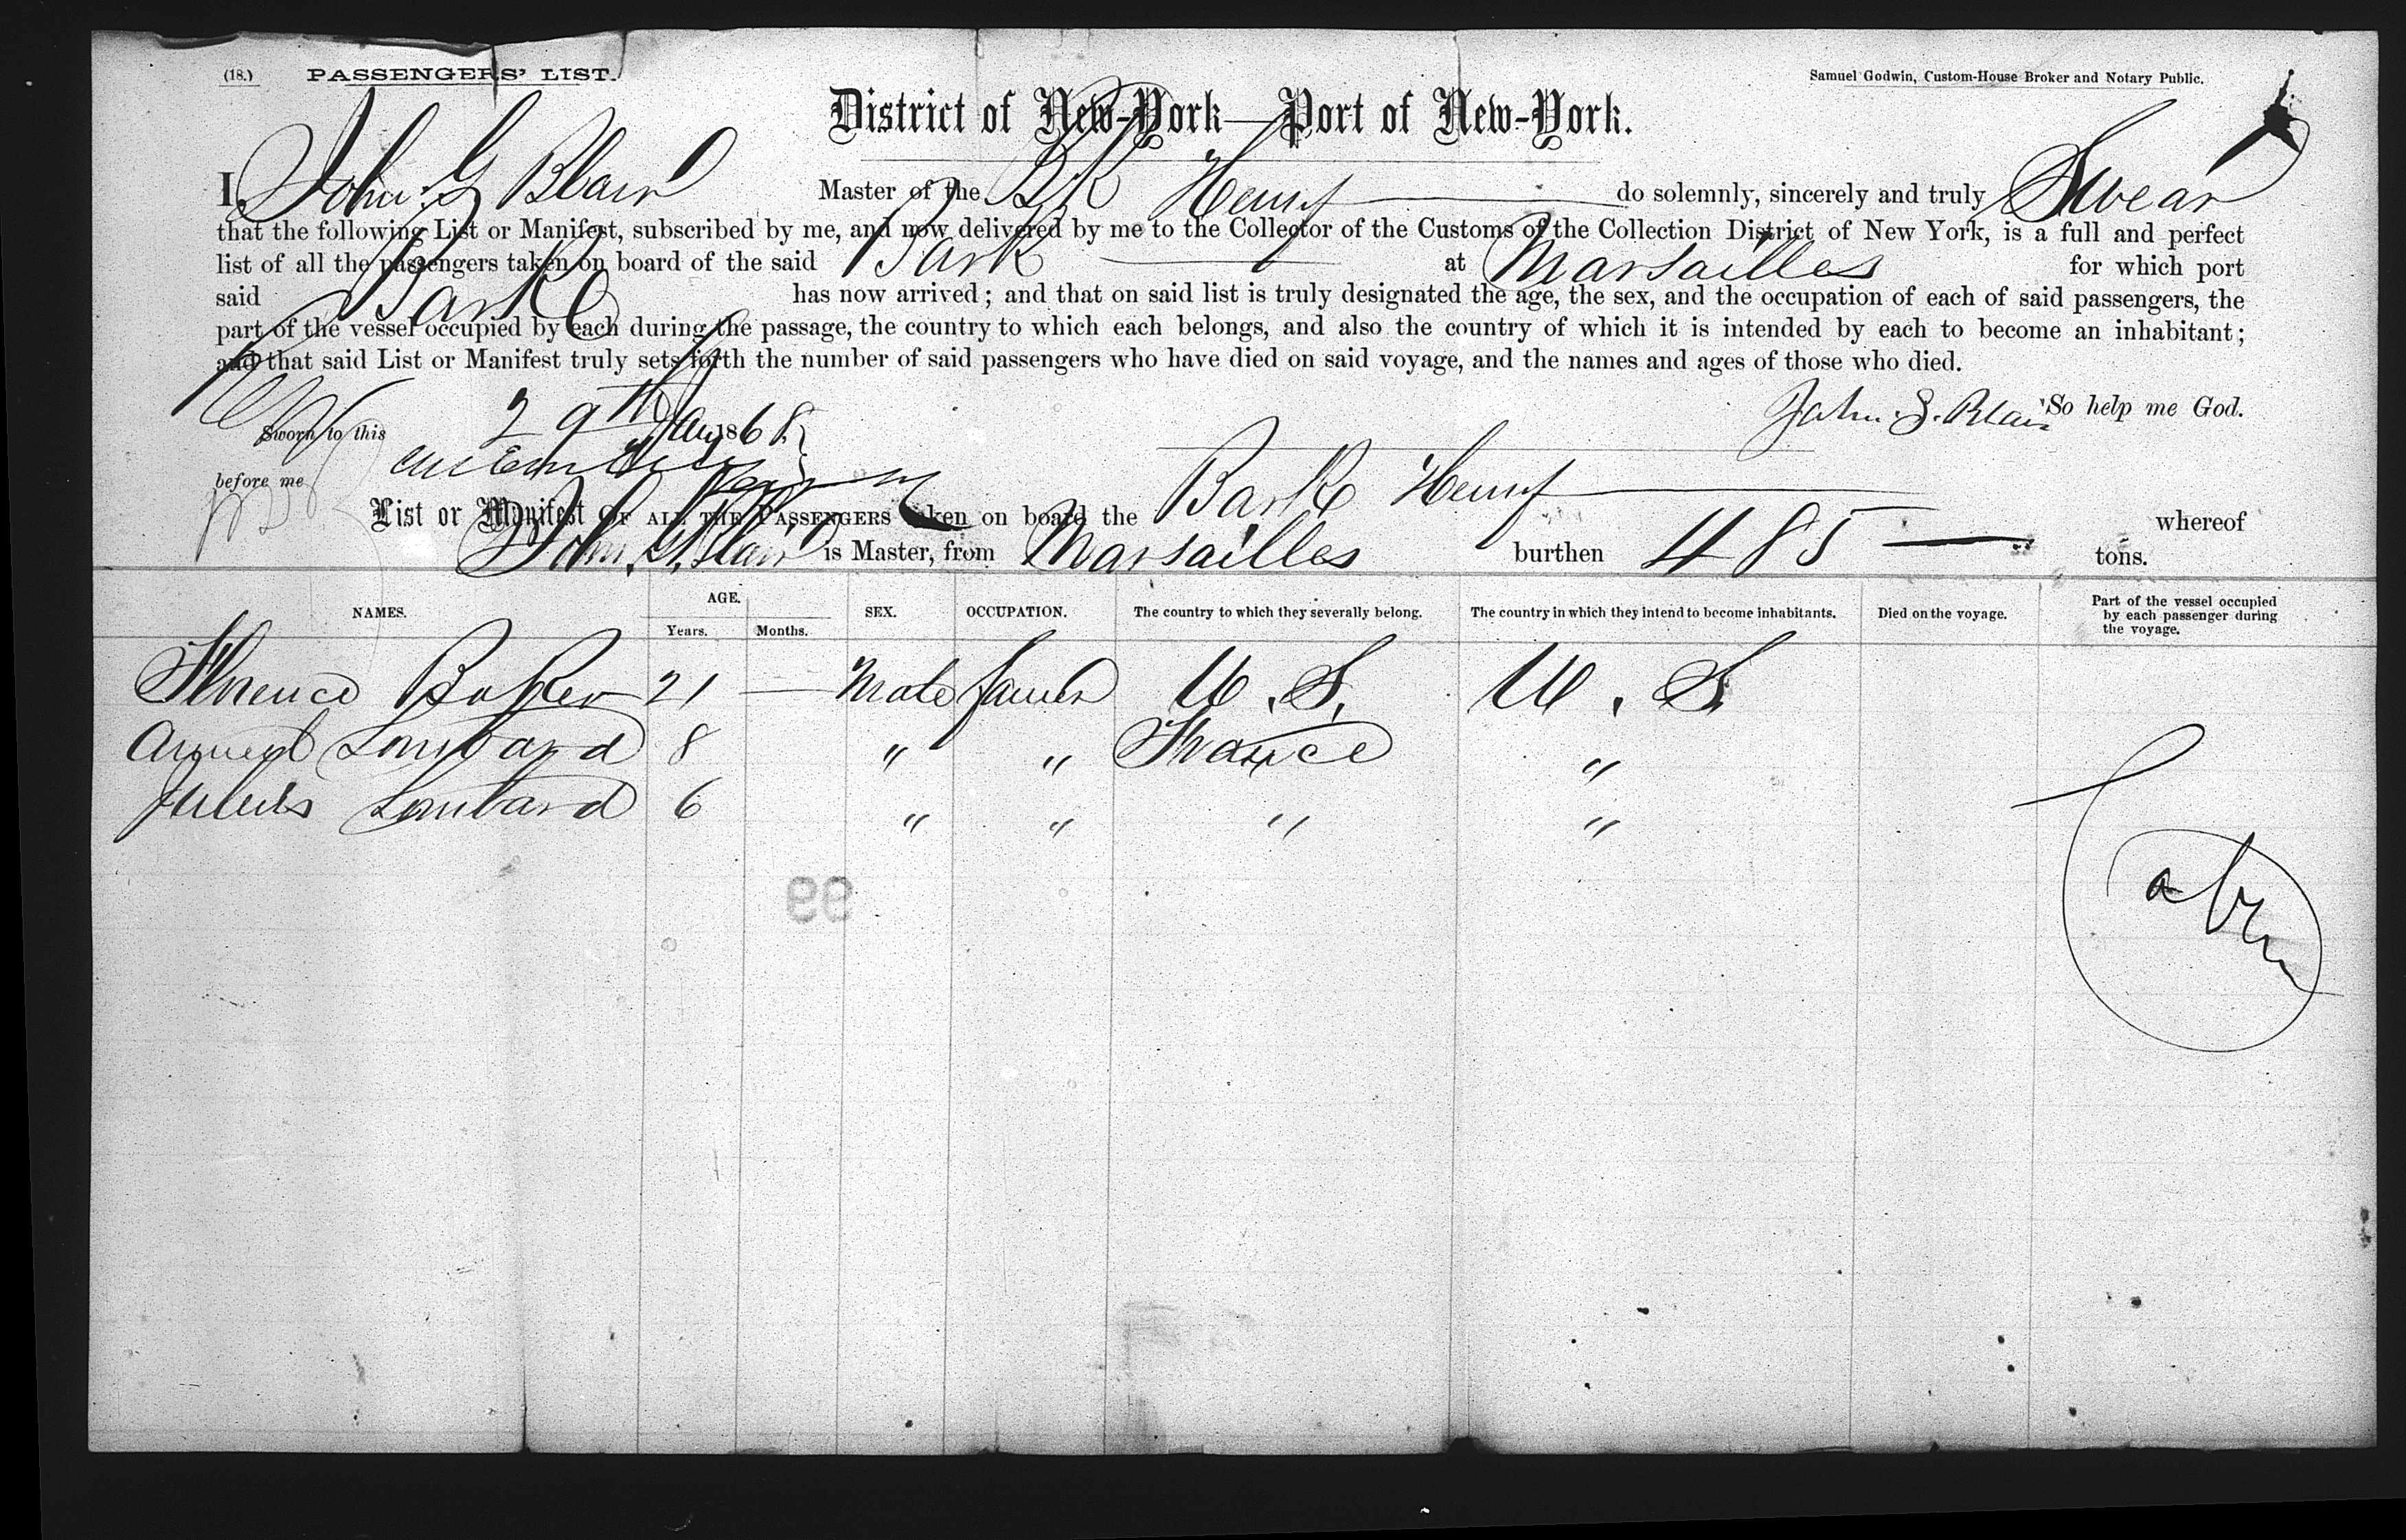 (18.) PASSENGERS' LIST. Samuel Godwin, Custom-House Broker and Notary Public.
District of New-York—Port of New-York.
I, John G Blair Master of the Bk Henry do solemnly, sincerely and truly Swear
that the following List or Manifest, subscribed by me, and now delivered by me to the Collector of the Customs of the Collection District of New York, is a full and perfect
list of all the passengers taken on board of the said Bark at Marsailles for which port
said Bark has now arrived; and that on said list is truly designated the age, the sex, and the occupation of each of said passengers, the
part of the vessel occupied by each during the passage, the country to which each belongs, and also the country of which it is intended by each to become an inhabitant;
and that said List or Manifest truly sets forth the number of said passengers who have died on said voyage, and the names and ages of those who died.
John. G. Blair So help me God.
Sworn to this 29th Jany 1868
before me
List or Manifest OF ALL THE PASSENGERS taken on board the Bark Henry whereof
John. G. Blair is Master, from Marsailles burthen 485 tons.
NAMES. AGE. Years. Months. SEX. OCCUPATION. The country to which they severally belong. The country in which they intend to become inhabitants. Died on the voyage. Part of the vessel occupied by each passenger during the voyage.
Florence Baker 21 — Male U.S. U.S.
Lombard 8 " " France "
Lombard 6 " " " "
Cabin
99